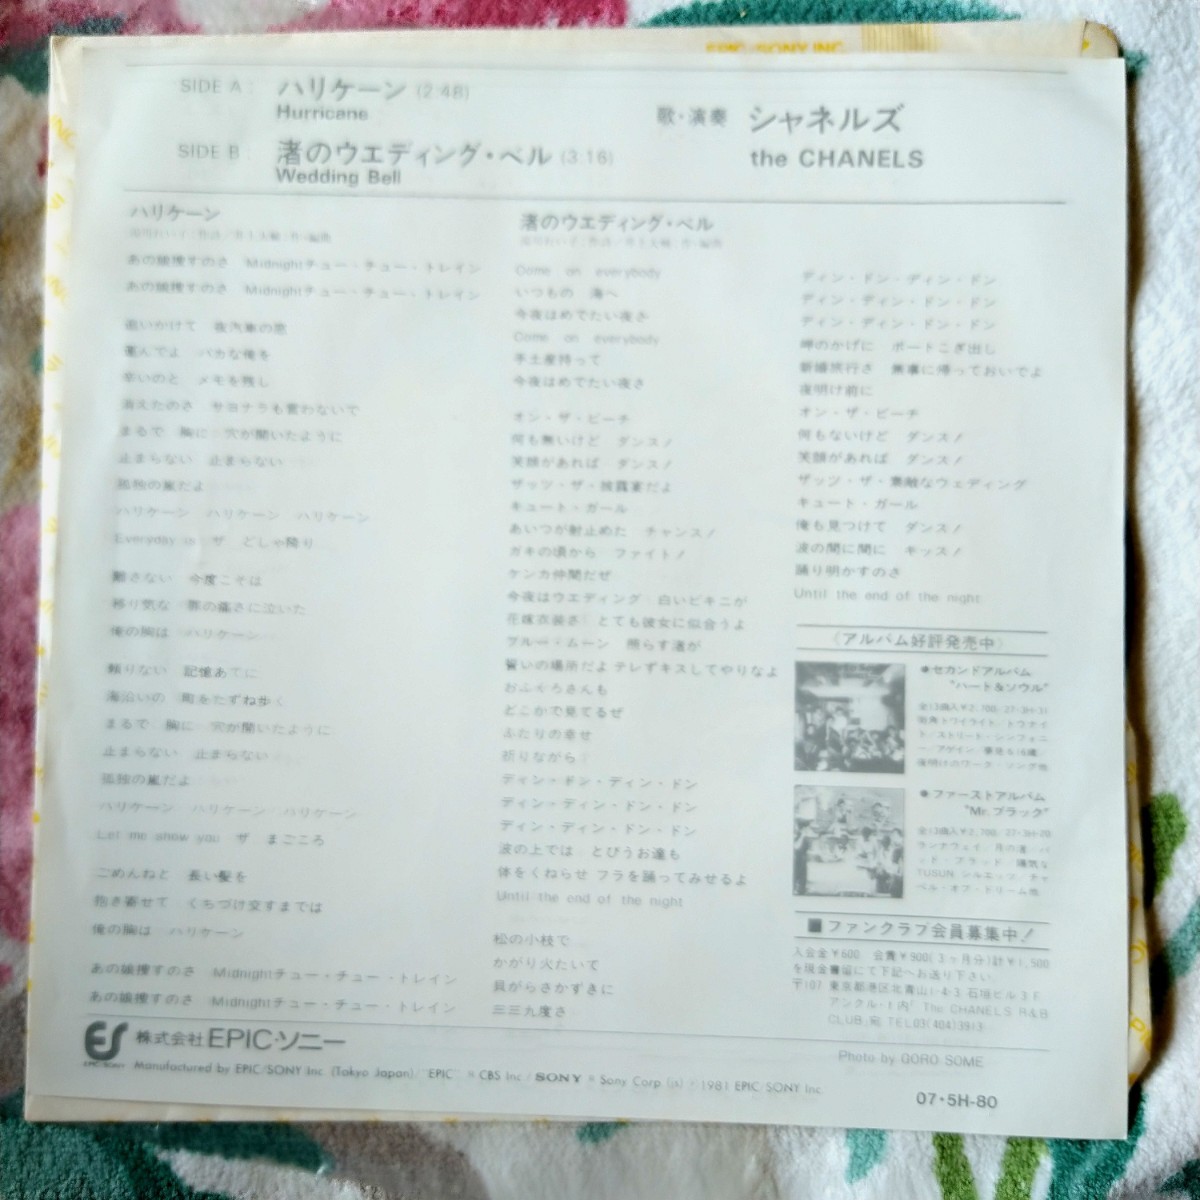 EPIC/SONY INC.
SIDE A: ハリケーン (2:48)
Hurricane
SIDE B: 渚のウエディング・ベル (3:16)
Wedding Bell
歌・演奏 シャネルズ
the CHANELS
ハリケーン
湯川れい子:作詩/井上大輔:作・編曲
あの娘捜すのさ Midnightチュー・チュー・トレイン
あの娘捜すのさ Midnightチュー・チュー・トレイン
追いかけて 夜汽車の窓
運んでよ バカな俺を
辛いのと メモを残し
消えたのさ サヨナラも言わないで
まるで 胸に 穴が開いたように
止まらない 止まらない
孤独の嵐だよ
ハリケーン ハリケーン ハリケーン
Everyday is ザ どしゃ降り
離さない 今度こそは
移り気な 罪の痛さに泣いた
俺の胸は ハリケーン
頼りない 記憶あてに
海沿いの 町をたずね歩く
まるで 胸に 穴が開いたように
止まらない 止まらない
孤独の嵐だよ
ハリケーン ハリケーン ハリケーン
Let me show you ザ まごころ
ごめんねと 長い髪を
抱き寄せて くちづけ交すまでは
俺の胸は ハリケーン
あの娘捜すのさ Midnightチュー・チュー・トレイン
あの娘捜すのさ Midnightチュー・チュー・トレイン
渚のウエディング・ベル
湯川れい子:作詩/井上大輔:作・編曲
Come on everybody
いつもの 海へ
今夜はめでたい夜さ
Come on everybody
手土産持って
今夜はめでたい夜さ
オン・ザ・ビーチ
何も無いけど ダンス!
笑顔があれば ダンス!
ザッツ・ザ・披露宴だよ
キュート・ガール
あいつが射止めた チャンス!
ガキの頃から ファイト!
ケンカ仲間だぜ
今夜はウエディング 白いビキニが
花嫁衣装さ とても彼女に似合うよ
ブルー・ムーン 照らす渚が
誓いの場所だよ テレずキスしてやりなよ
おふくろさんも
どこかで見てるぜ
ふたりの幸せ
祈りながら
ディン・ドン・ディン・ドン
ディン・ディン・ドン・ドン
ディン・ディン・ドン・ドン
波の上では とびうお達も
体をくねらせ フラを踊ってみせるよ
Until the end of the night
松の小枝で
かがり火たいて
貝がらさかずきに
三三九度さ
ディン・ドン・ディン・ドン
ディン・ディン・ドン・ドン
ディン・ディン・ドン・ドン
岬のかげに ボートこぎ出し
新婚旅行さ 無事に帰っておいでよ
夜明け前に
オン・ザ・ビーチ
何もないけど ダンス!
笑顔があれば ダンス!
ザッツ・ザ・素敵なウェディング
キュート・ガール
俺も見つけて ダンス!
波の間に間に キッス!
踊り明かすのさ
Until the end of the night
〈アルバム好評発売中〉
●セカンドアルバム
"ハート&ソウル"
全13曲入¥2,700/27・3H-31
街角トワイライト/トゥナイ
ト/ストリート・シンフォニ
ー/アゲイン/夢見る16歳/
夜明けのワーク・ソング他
●ファーストアルバム
"Mr.ブラック"
全13曲入¥2,700/27・3H-20
ランナウェイ/月の渚/バ
ッド・ブラッド/陽気な
TUSUN シルエッツ/チャ
ペル・オブ・ドリーム他
■ファンクラブ会員募集中!
入会金¥600 会費¥900(3ヶ月分)計¥1,500
を現金書留にて下記へお送り下さい。
〒107 東京都港区北青山1-4-3 石垣ビル3F
アンクル・F内「The CHANELS R&B
CLUB」宛 TEL03(404)3913
ES EPIC/SONY
株式会社 EPIC・ソニー
Photo by GORO SOME
Manufactured by EPIC/SONY Inc. (Tokyo Japan)/"EPIC" ® CBS Inc./SONY ® Sony Corp. 1981 EPIC/SONY Inc.
07・5H-80